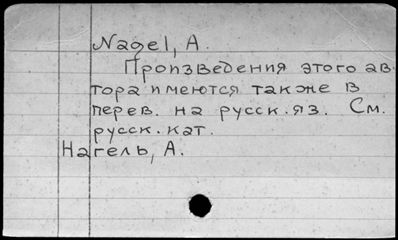 Nagel, A.
Произведения этого ав
тора имеются также в
перев. на русск. яз. См.
русск. кат.
Нагель, А.